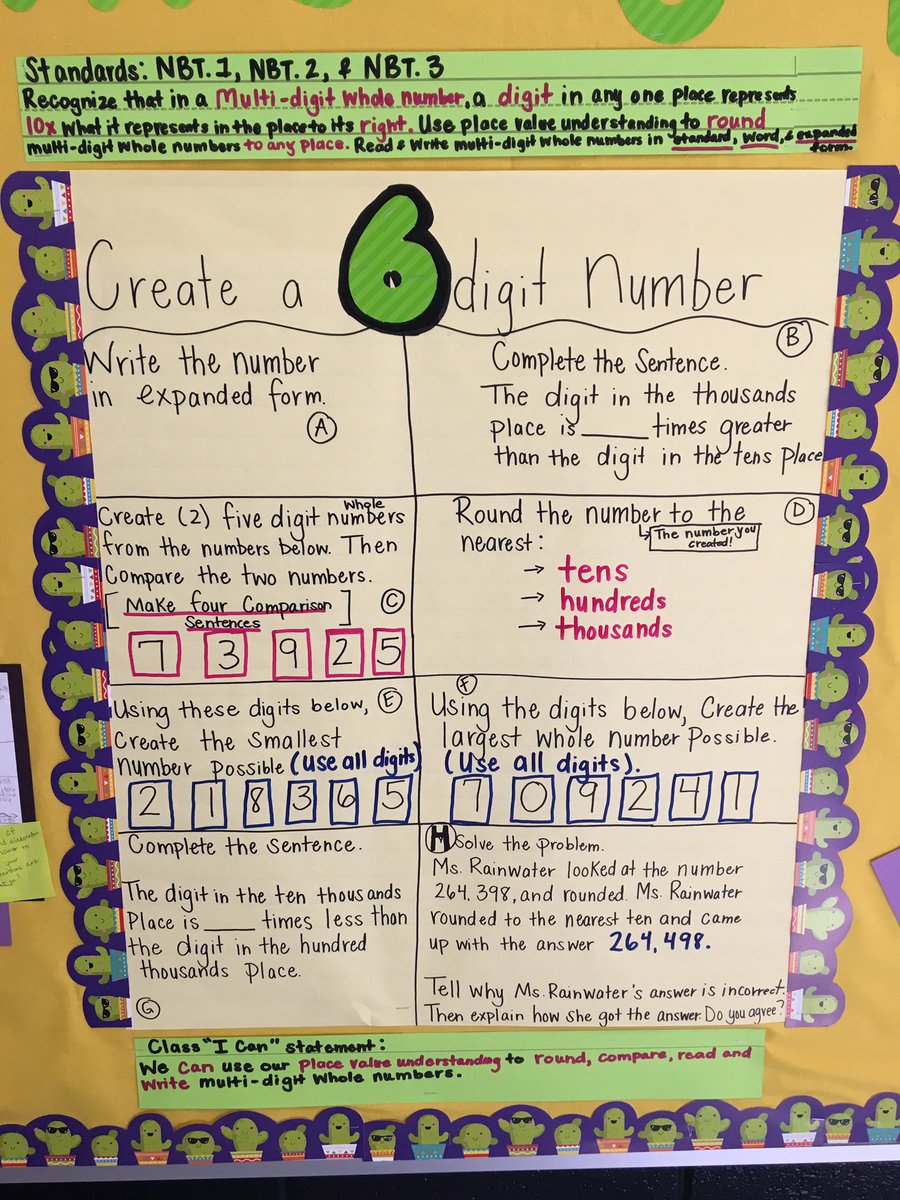 Standards: NBT.1, NBT.2, & NBT.3
Recognize that in a Multi-digit whole number, a digit in any one place represents
10x what it represents in the place to its right. Use place value understanding to round
multi-digit whole numbers to any place. Read & Write multi-digit whole numbers in standard, word, & expanded
form.
Create a 6 digit number
Write the number
in expanded form.
A
B
Complete the Sentence.
The digit in the thousands
place is _____ times greater
than the digit in the tens place
Create (2) five digit whole numbers
from the numbers below. Then
Compare the two numbers.
[Make four Comparison
Sentences]
C
7 3 9 2 5
D
Round the number to the
nearest:
The number you
created!
→ tens
→ hundreds
→ thousands
Using these digits below,
E
Create the smallest
number possible (use all digits)
2 1 8 3 6 5
F
Using the digits below, Create the
largest whole number possible.
(Use all digits).
7 0 9 2 4 1
Complete the Sentence.
The digit in the ten thousands
Place is ____ times less than
the digit in the hundred
thousands place.
G
H
Solve the Problem.
Ms. Rainwater looked at the number
264,398, and rounded. Ms. Rainwater
rounded to the nearest ten and came
up with the answer 264,498.
Tell why Ms. Rainwater's answer is incorrect.
Then explain how she got the answer. Do you agree?
Class "I Can" statement:
We can use our place value understanding to round, compare, read and
write multi-digit whole numbers.